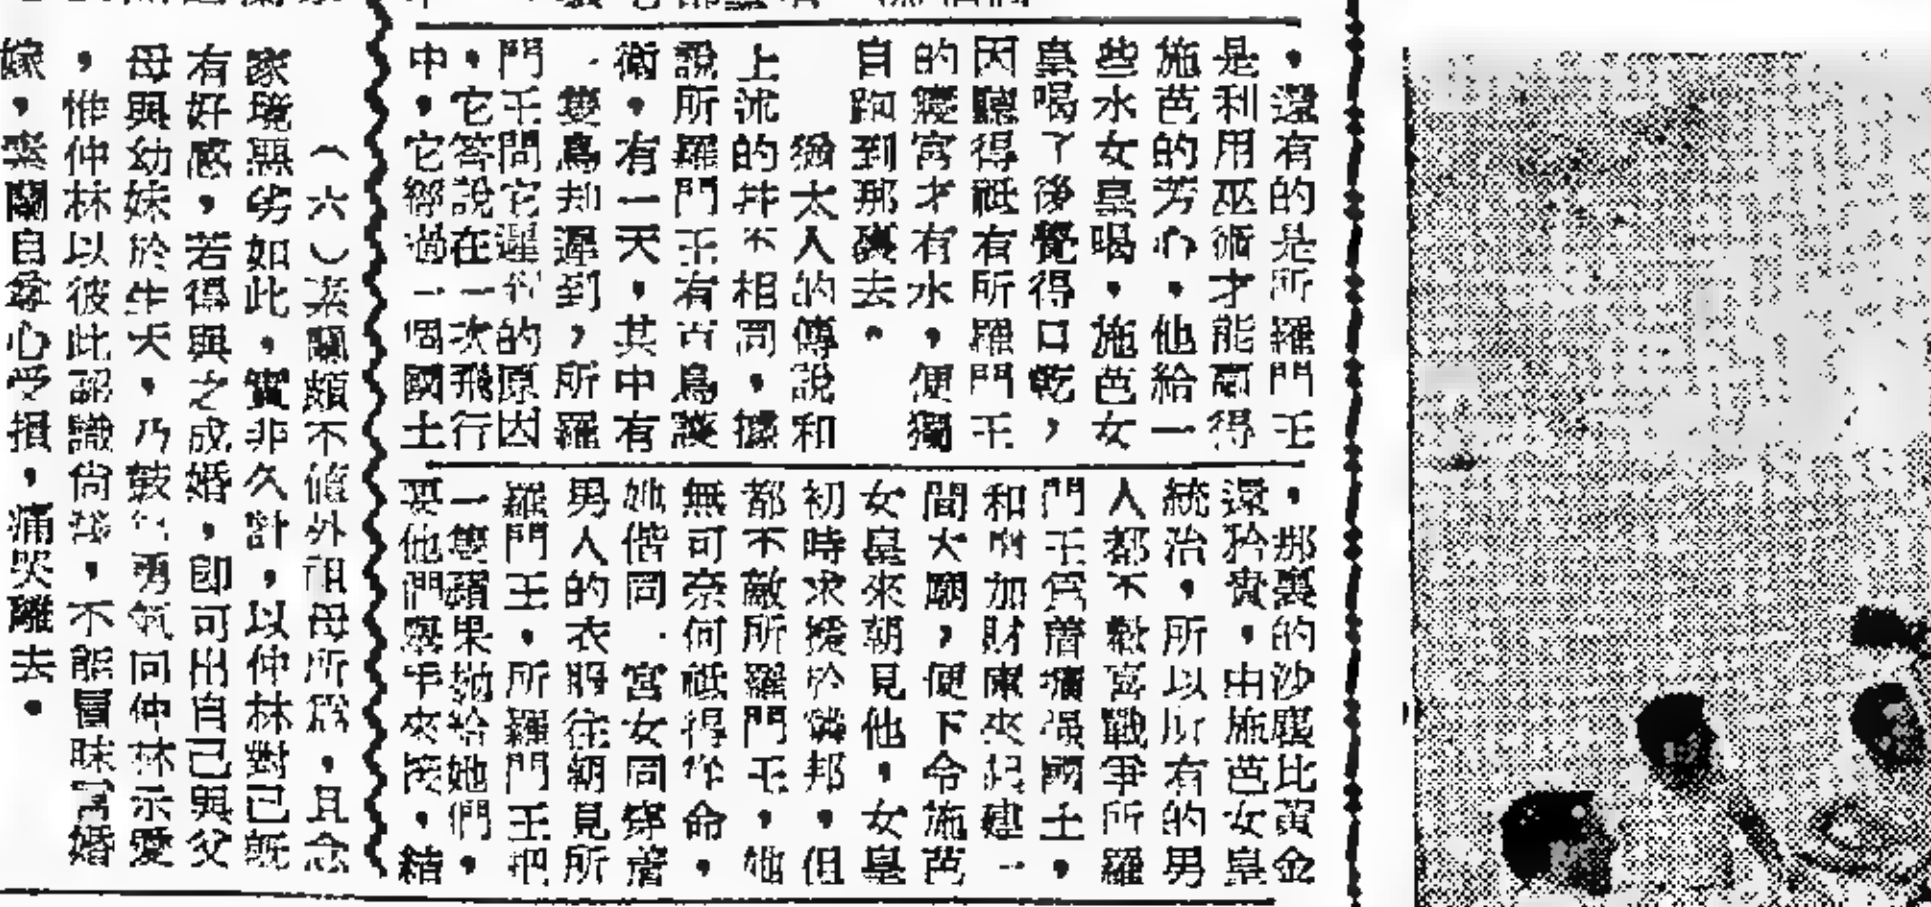 ，還有的是所羅門王
是利用巫術才能贏得
施芭的芳心，他給一
些水女皇喝，施芭女
皇喝了後覺得口乾，
因聽得祗有所羅門王
的寢宮才有水，便獨
自跑到那裏去。
猶太人的傳說和
上述的並不相同，據
說所羅門王有百鳥護
衛，有一天，其中有
一隻鳥却遲到，所羅
門王問它遲到的原因
，它答說在一次飛行
中，它經過一個國土
，那裏的沙塵比黃金
還矜貴，由施芭女皇
統治，所以所有的男
人都不歡喜戰爭所羅
門王為着擴張國土，
和增加財庫來起建一
間大廟，便下令施芭
女皇來朝見他，女皇
初時求援於鄰邦，但
都不敵所羅門王，她
無可奈何祗得從命，
她偕同一宮女同穿着
男人的衣服往朝見所
羅門王，所羅門王把
一雙蘋果拋給她們，
要他們舉手來接，結
（六）素蘭頗不值外祖母所為，且念
家境惡劣如此，實非久計，以仲林對己既
有好感，若得與之成婚，卽可出自己與父
母與幼妹於生天，乃鼓勇氣向仲林示愛
，惟仲林以彼此認識尚淺，不能冒昧言婚
嫁，素蘭自尊心受損，痛哭離去。